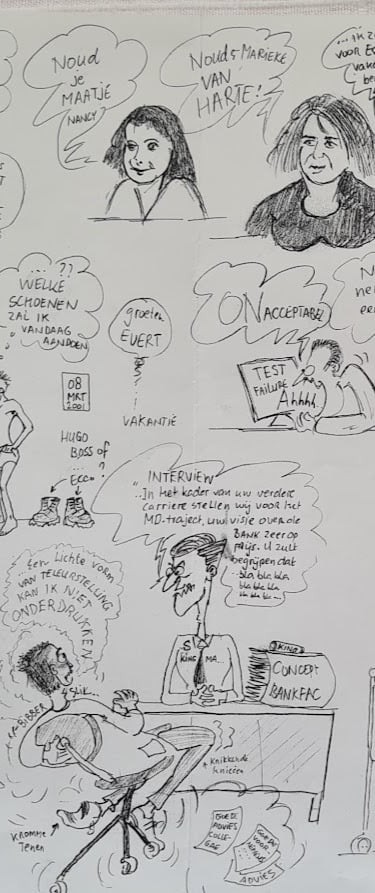 Noud
je
MAATJE
NANCY?
Noud & MARIEKE
VAN
HARTE!
VOOR
...??
WELKE
SCHOENEN
ZAL IK
VANDAAG
AANDOEN
groeten
EVERT
VAKANTIE
08
MRT
2001
HUGO
BOSS of
ECCO?
?
ONACCEPTABEL
TEST
FAILURE
Ahhhh
INTERVIEW
...In het kader van uw verdere
carriere stellen wij voor het
MD-traject, uw visie over de
BANK zeer op
prijs. U zult
begrijpen dat
...bla bla bla
bla bla bla
bla bla bla...
...Een lichte vorm
VAN TELEURSTELLING
KAN IK NIET
ONDERDRUKKEN
SLIK...
BIBBER
KING
CONCEPT
BANKPAC
Knikkende
knieën
Kromme
Tenen
GOEDE
ADVIES
COLLE-
GAE
ADVIES